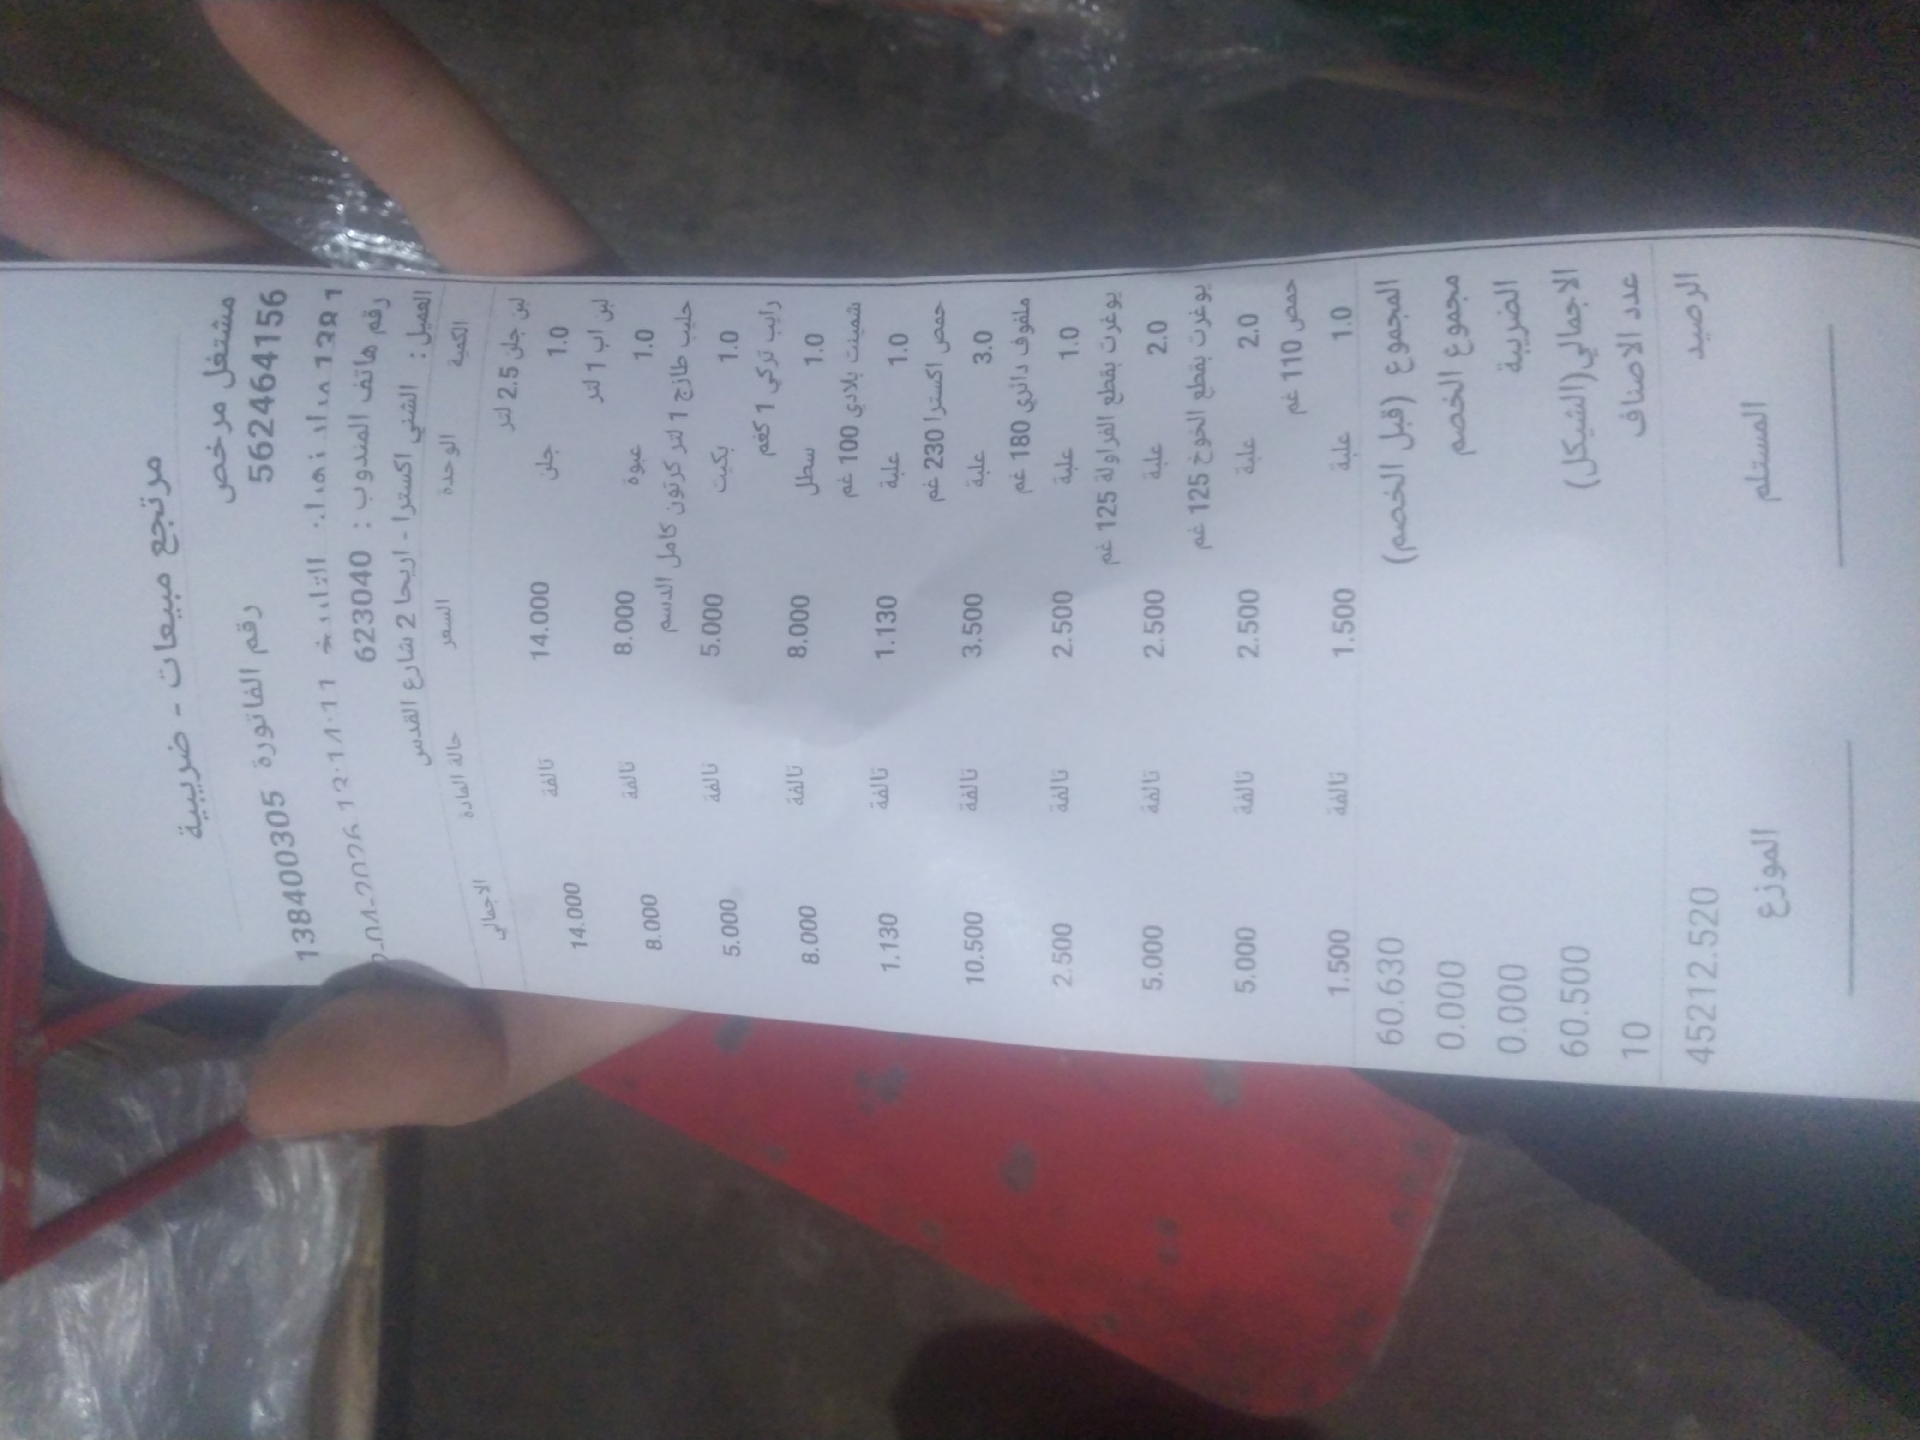 مرتجع مبيعات - ضريبية
مشتغل مرخص 562464156
رقم الفاتورة 138400305
رقم هاتف المندوب : 623040
العميل : الشني اكسترا - اريحا 2 شارع القدس
الكمية الوحدة السعر حالة المادة الاجمالي
لبن جلن 2.5 لتر
1.0 جلن 14.000 تالفة 14.000
لبن اب 1 لتر
1.0 عبوة 8.000 تالفة 8.000
حليب طازج 1 لتر كرتون كامل الدسم
1.0 بكيت 5.000 تالفة 5.000
رايب تركي 1 كغم
1.0 سطل 8.000 تالفة 8.000
شمينت بلادي 100 غم
1.0 علبة 1.130 تالفة 1.130
حمص اكسترا 230 غم
3.0 علبة 3.500 تالفة 10.500
ملفوف دانري 180 غم
1.0 علبة 2.500 تالفة 2.500
يوغرت بقطع الفراولة 125 غم
2.0 علبة 2.500 تالفة 5.000
يوغرت بقطع الخوخ 125 غم
2.0 علبة 2.500 تالفة 5.000
حمص 110 غم
1.0 علبة 1.500 تالفة 1.500
المجموع (قبل الخصم) 60.630
مجموع الخصم 0.000
الضريبة 0.000
الاجمالي(الشيكل) 60.500
عدد الاصناف 10
الرصيد 45212.520
المستلم الموزع